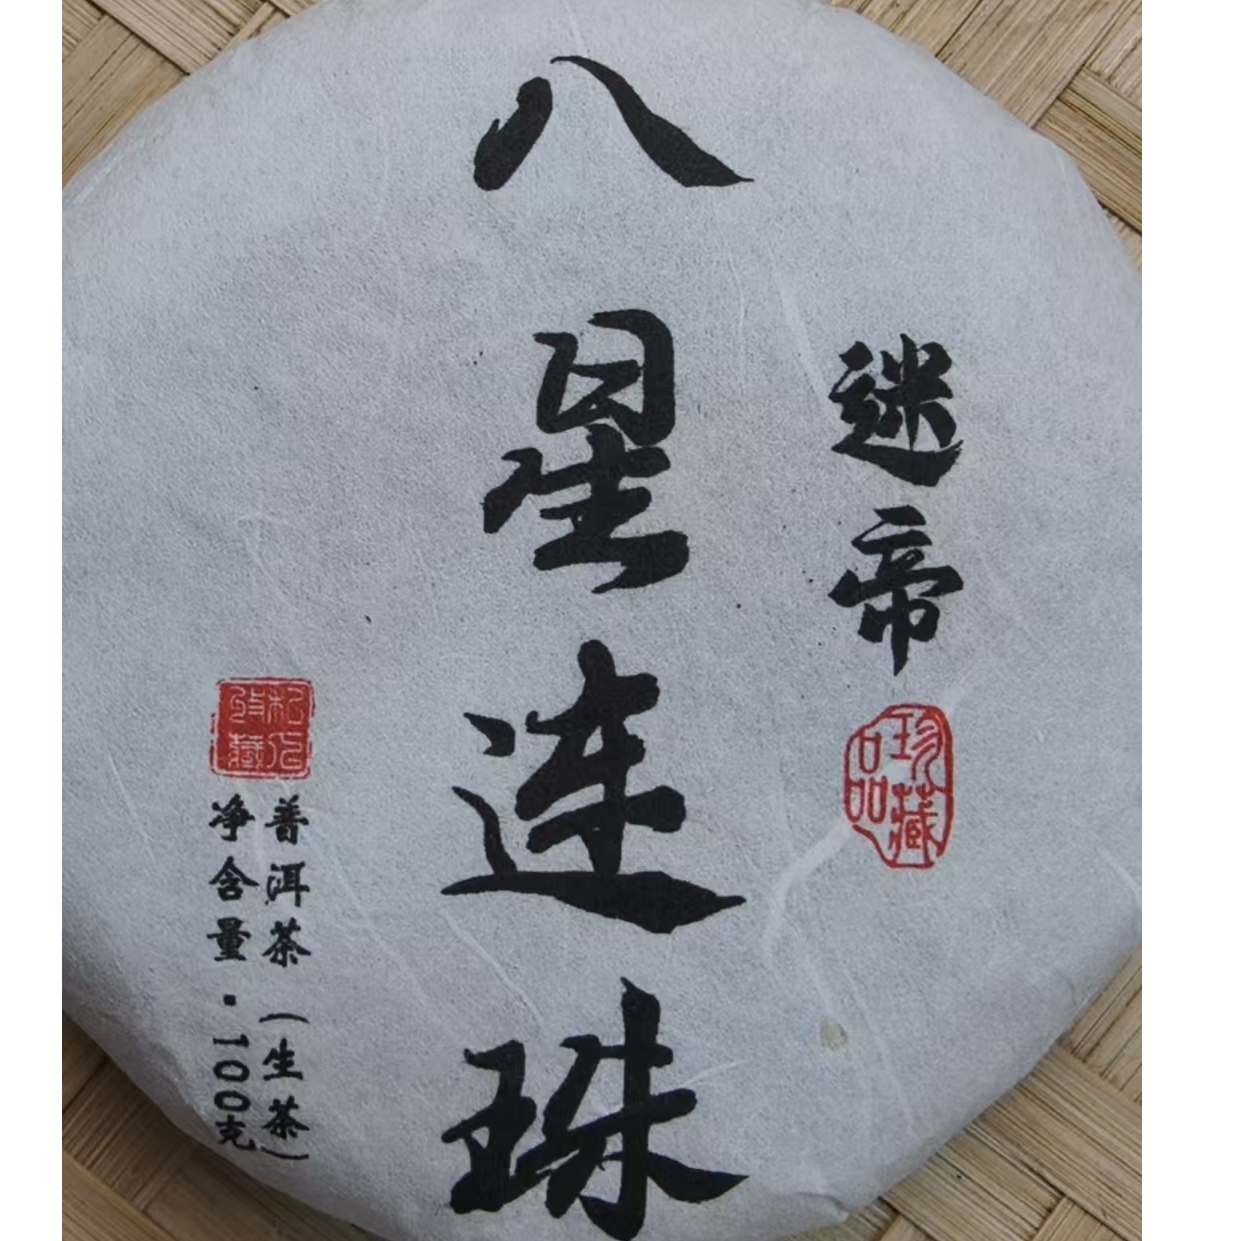 迷帝
珍藏
品
八星连珠
私人
收藏
普洱茶（生茶）
净含量·100克